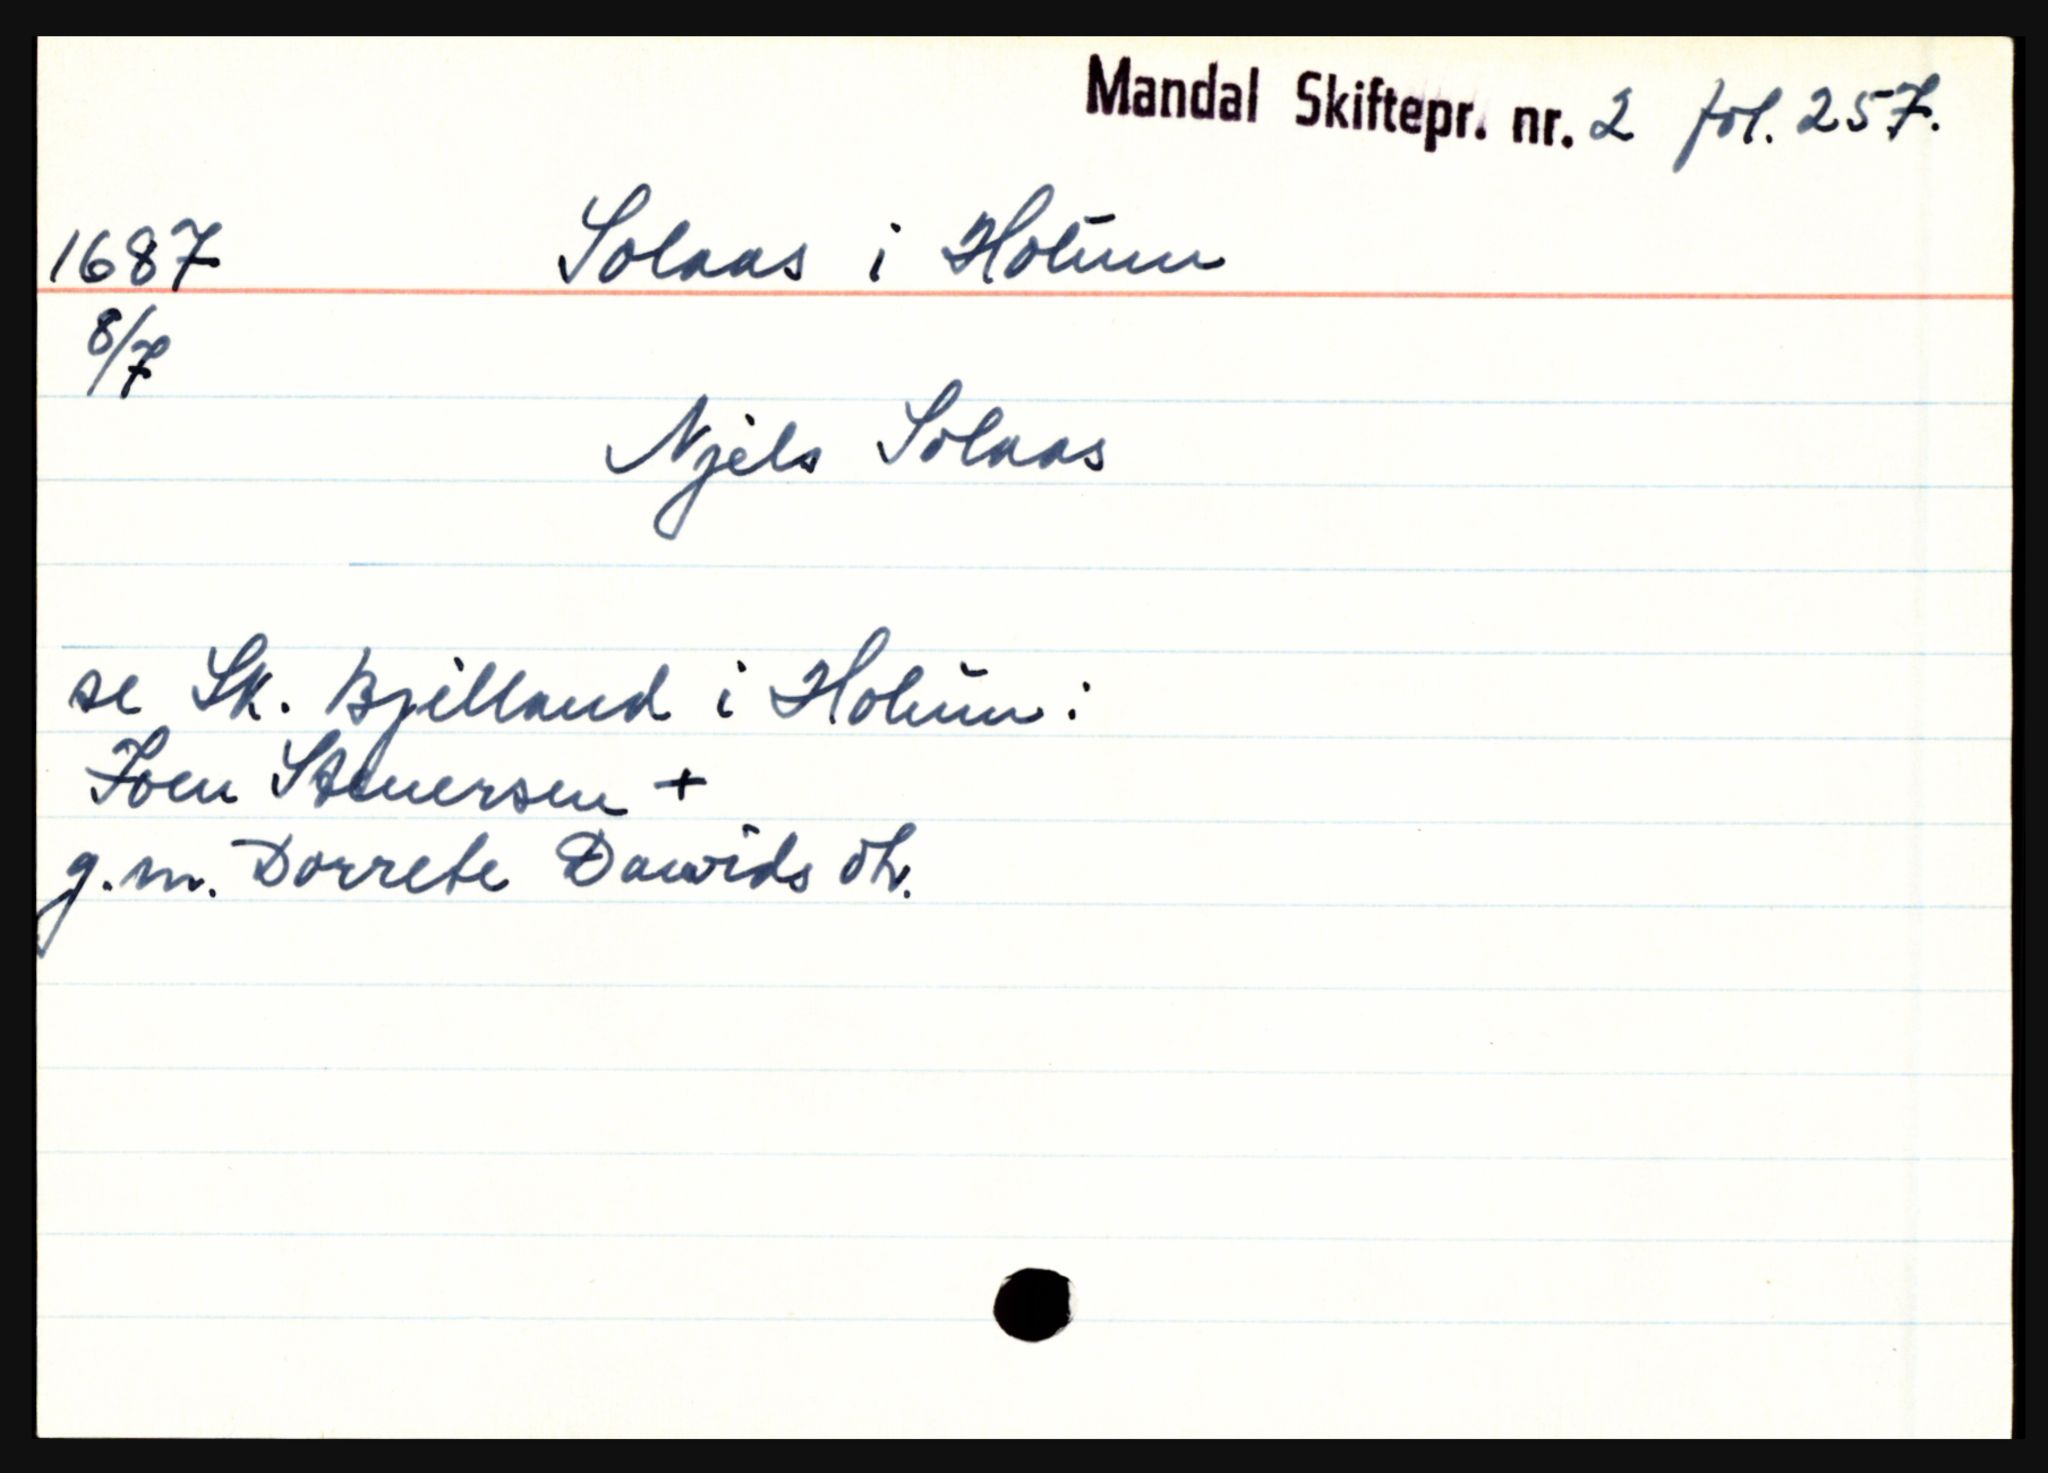 Mandal Skiftepr. nr. 2 fol. 257.
1687 Solaas i Holum
8/7
Njels Solaas
se Sk. Bjelland i Holum:
Joen Stenersen +
g.m. Dorrete Dawids dtr.